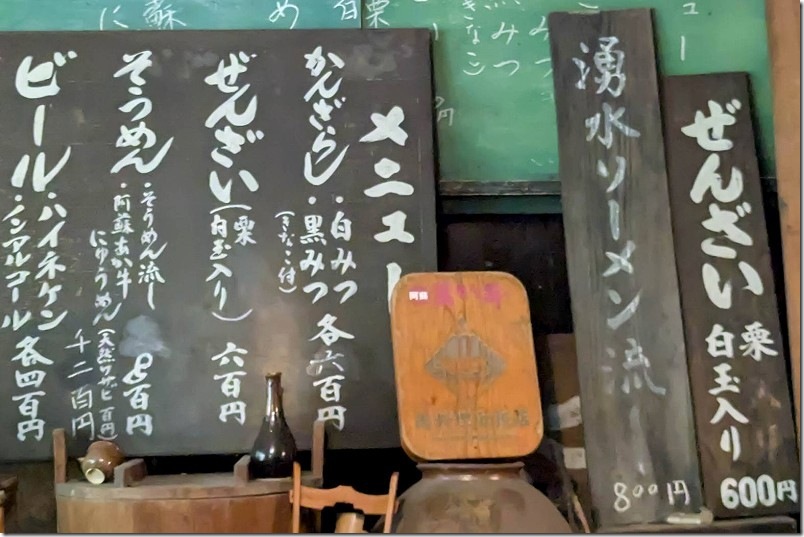 メニュー
かんざらし・白みつ
・黒みつ 各六百円
(きなこ付)
ぜんざい(栗 白玉入り) 六百円
そうめん・そうめん流し 8百円
・阿蘇あか牛
にゅうめん 千二百円
(天然ワサビ百円)
ビール・ハイネケン
・ノンアルコール 各四百円
湧水ソーメン流し
800円
ぜんざい 栗
白玉入り
600円
阿蘇